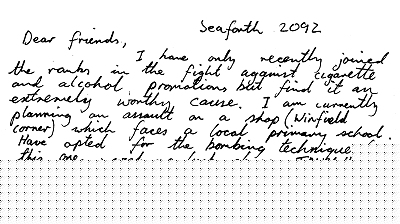 Seaforth 2092
Dear friends,
I have only recently joined
the ranks in the fight against cigarette
and alcohol promotions but find it an
extremely worthy cause. I am currently
planning an assault on a shop (Winfield
corner) which faces a local primary school.
Have opted for the bombing technique
this